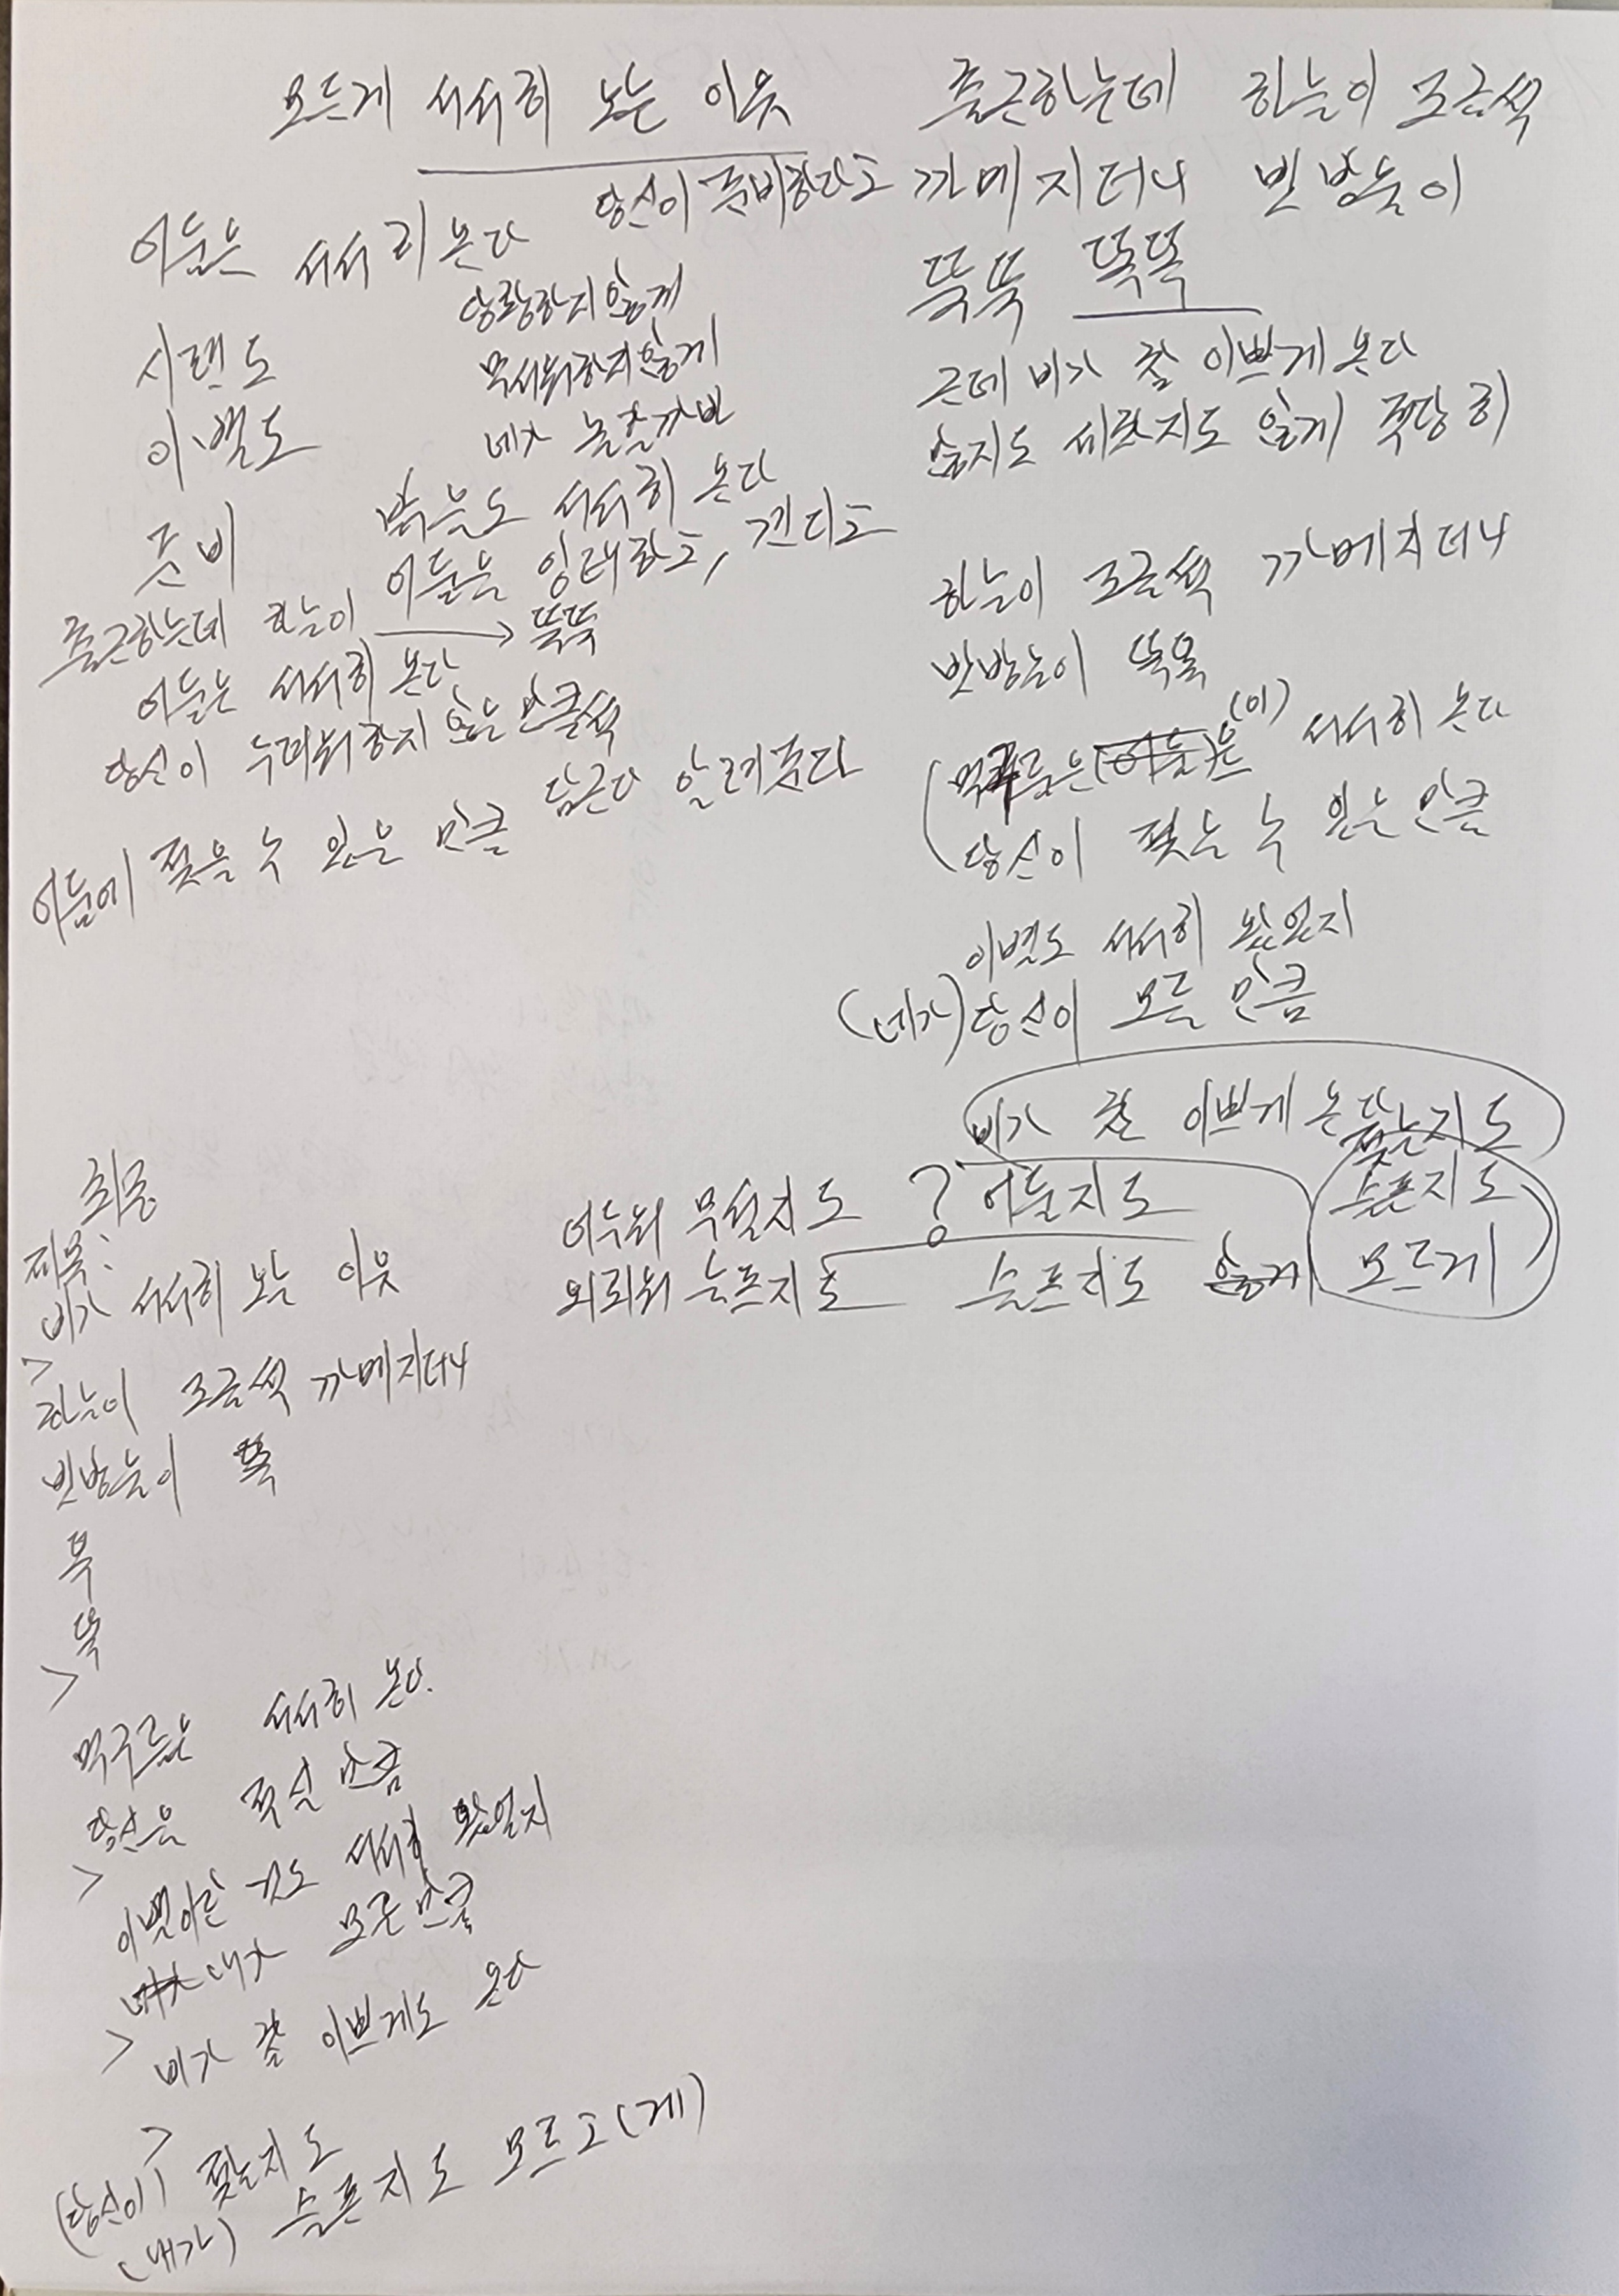 모르게 서서히 오는 이유
당신이 준비하라고
어둠은 서서히 온다
당황하지 않게
시련도
무서워하지 않게
이별도
네가 놀랄까봐
준비
밝음도 서서히 온다
어둠은 잉태하고, 견디고
출근하는데 하늘이 → 뚝뚝
어둠은 서서히 온다
당신이 두려워하지 않는 만큼씩
담근다 알려준다
어둠에 젖을 수 있는 만큼
출근하는데 하늘이 조금씩
까메지더니 빗방울이
뚝뚝 똑똑
근데 비가 참 이쁘게 온다
않지도 세차지도 않게 적당히
하늘이 조금씩 까메지더니
빗방울이 뚝뚝
(먹구름은(어둠)은 (이) 서서히 온다
당신이 젖는 수 있는 만큼
이별도 서서히 왔었지
(네가) 당신이 모를 만큼
비가 참 이쁘게 온다
젖는지도
어두워 무얼지도 ? 어둘지도 슬픈지도
외로워 슬픈지도 슬픈지도 않게 모르게
최종
제목:
비가 서서히 오는 이유
>
하늘이 조금씩 까메지더니
빗방울이 뚝
뚝
뚝
>
먹구름은 서서히 온다.
당신은 적실 만큼
>
이별이란 것도 서서히 왔었지
내가 모를 만큼
>
비가 참 이쁘게도 온다
>
(당신이) 젖는지도
(내가) 슬픈지도 모르고(게)